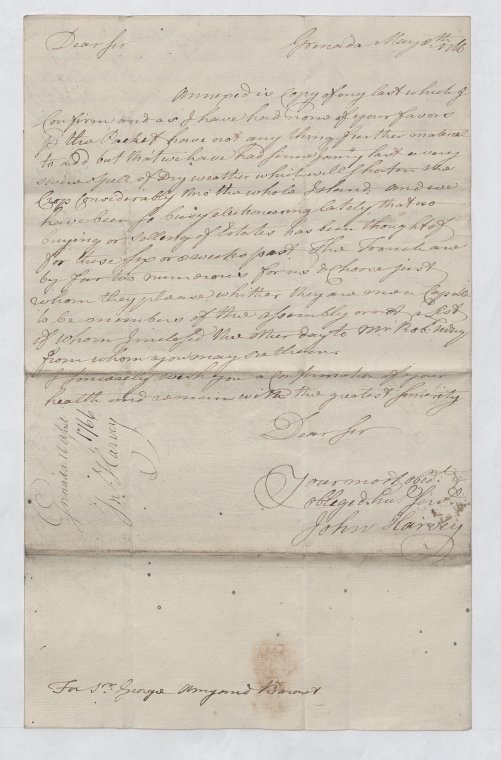 Dear Sir
Grenada May 8th 1766
Annexed is Copy of my last which I
Confirm and as I have had none of your favors
the Packet have not any thing further material
to add but that we have had since Janry last a very
severe spell of Dry weather which will shorten the
Crop Considerably thro the whole Island and we
have been so busy electioneering lately that no
buying or selling of Estates has been thought of
for these six or weeks past. The French are
by far too numerous for us & choose just
whom they please whither they are men Capable
to be members of the assembly or not a List
of whom I inclosed the other day to Mr Robt
from whom you may see them.
I sincerely wish you a Confirmation of your
health and remain with the greatest sincerity
Dear Sir
Your most obedt &
obliged hue. Servt
John Harvey
Grenada 16 April
1766
Jno. Harvey
For Sr. George Amyand Baronet